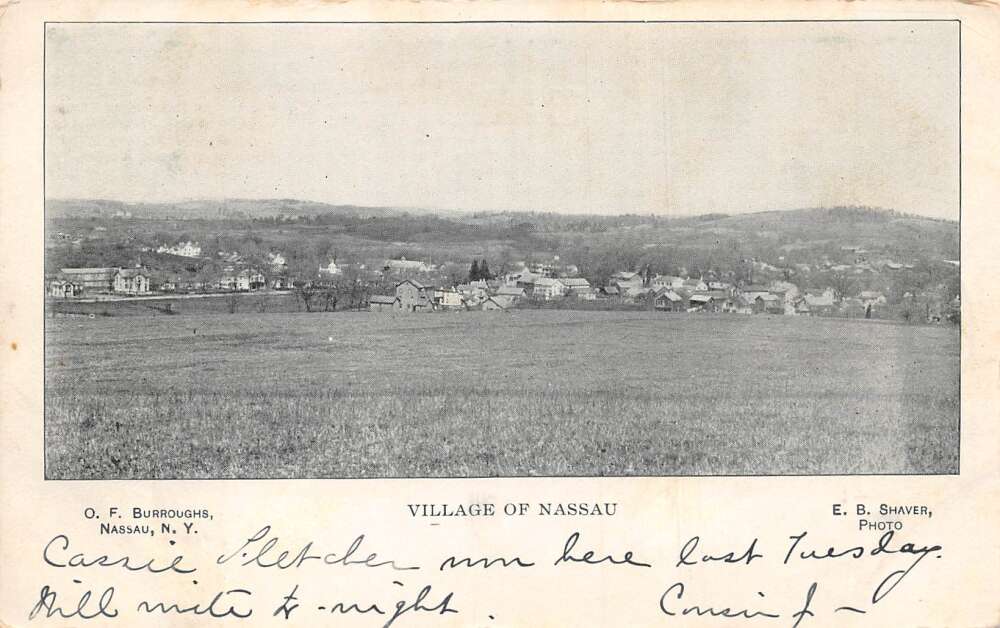 O. F. BURROUGHS,
NASSAU, N. Y.
VILLAGE OF NASSAU
E. B. SHAVER,
PHOTO
Cassie Fletcher was here last Tuesday.
Will write to-night.
Cousin J –